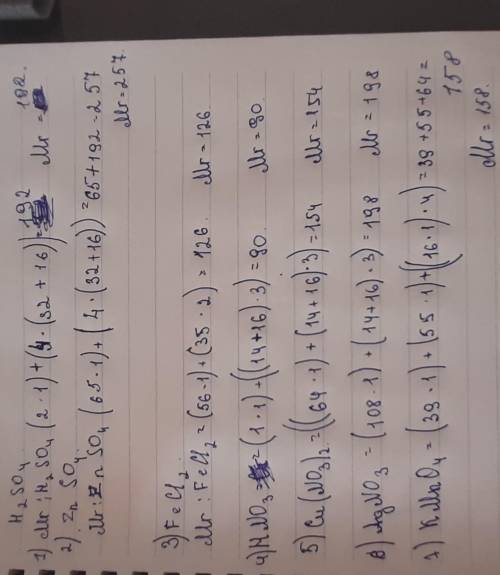 H₂SO₄
1) Mr: H₂SO₄ (2·1)+(4·(32+16))=192 Mr = 192.
2) Zn SO₄
Mr: Zn SO₄ (65·1)+(4·(32+16))=65+192=257
Mr=257.
3) FeCl₂.
Mr: FeCl₂ = (56·1)+(35·2)=126. Mr=126
4) HNO₃ = (1·1)+((14+16)·3)=90. Mr=90.
5) Cu(NO₃)₂=((64·1)+(14+16)·3)=154 Mr=154
6) AgNO₃ =(108·1)+(14+16)·3)=198 Mr=198
7) KMnO₄ = (39·1)+(55·1)+((16·1)·4)=39+55+64=
158
Mr=158.